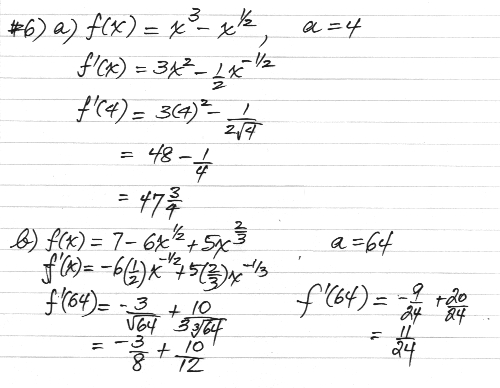 #6) a) f(x) = x³ − x^{1/2}, a = 4
f'(x) = 3x² − 1/2 x^{−1/2}
f'(4) = 3(4)² − 1/(2√4)
= 48 − 1/4
= 47 3/4
b) f(x) = 7 − 6x^{1/2} + 5x^{2/3} a = 64
f'(x) = −6(1/2)x^{−1/2} + 5(2/3)x^{−1/3}
f'(64) = −3/√64 + 10/(3∛64) f'(64) = −9/24 + 20/24
= −3/8 + 10/12 = 11/24